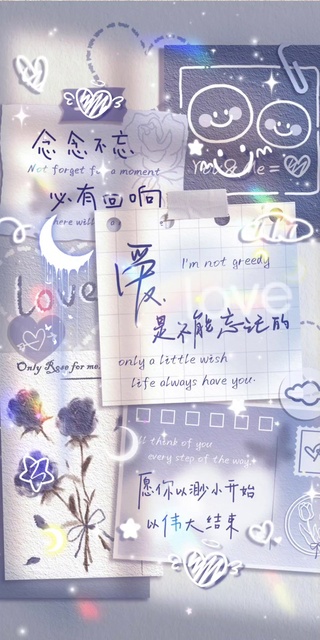 念念不忘
Not forget for a moment
必有回响
here will
You & Me =
Love
爱
I'm not greedy
love
是不能忘记的
only a little wish
life always have you.
Only Rose for me.
I'll think of you
every step of the way
愿你以渺小开始
以伟大结束